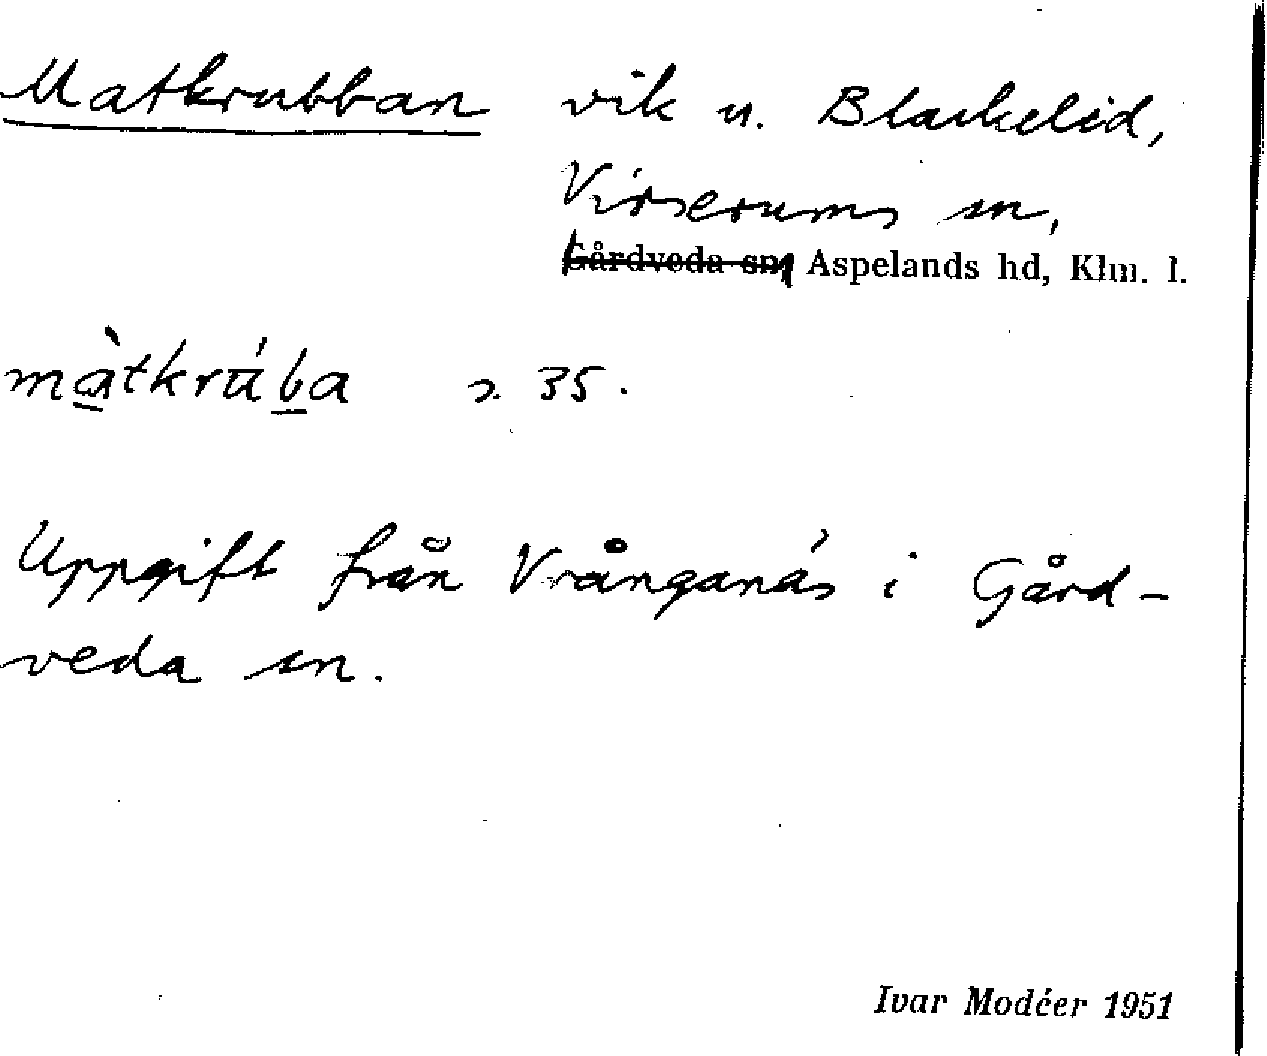 Matkrubban vik u. Blackelid,
Virserums sn,
Gårdveda sn, Aspelands hd, Klm. l.
màtkrúba s. 35.
Uppgift från Vrånganäs i Gård-
veda sn.
Ivar Modéer 1951